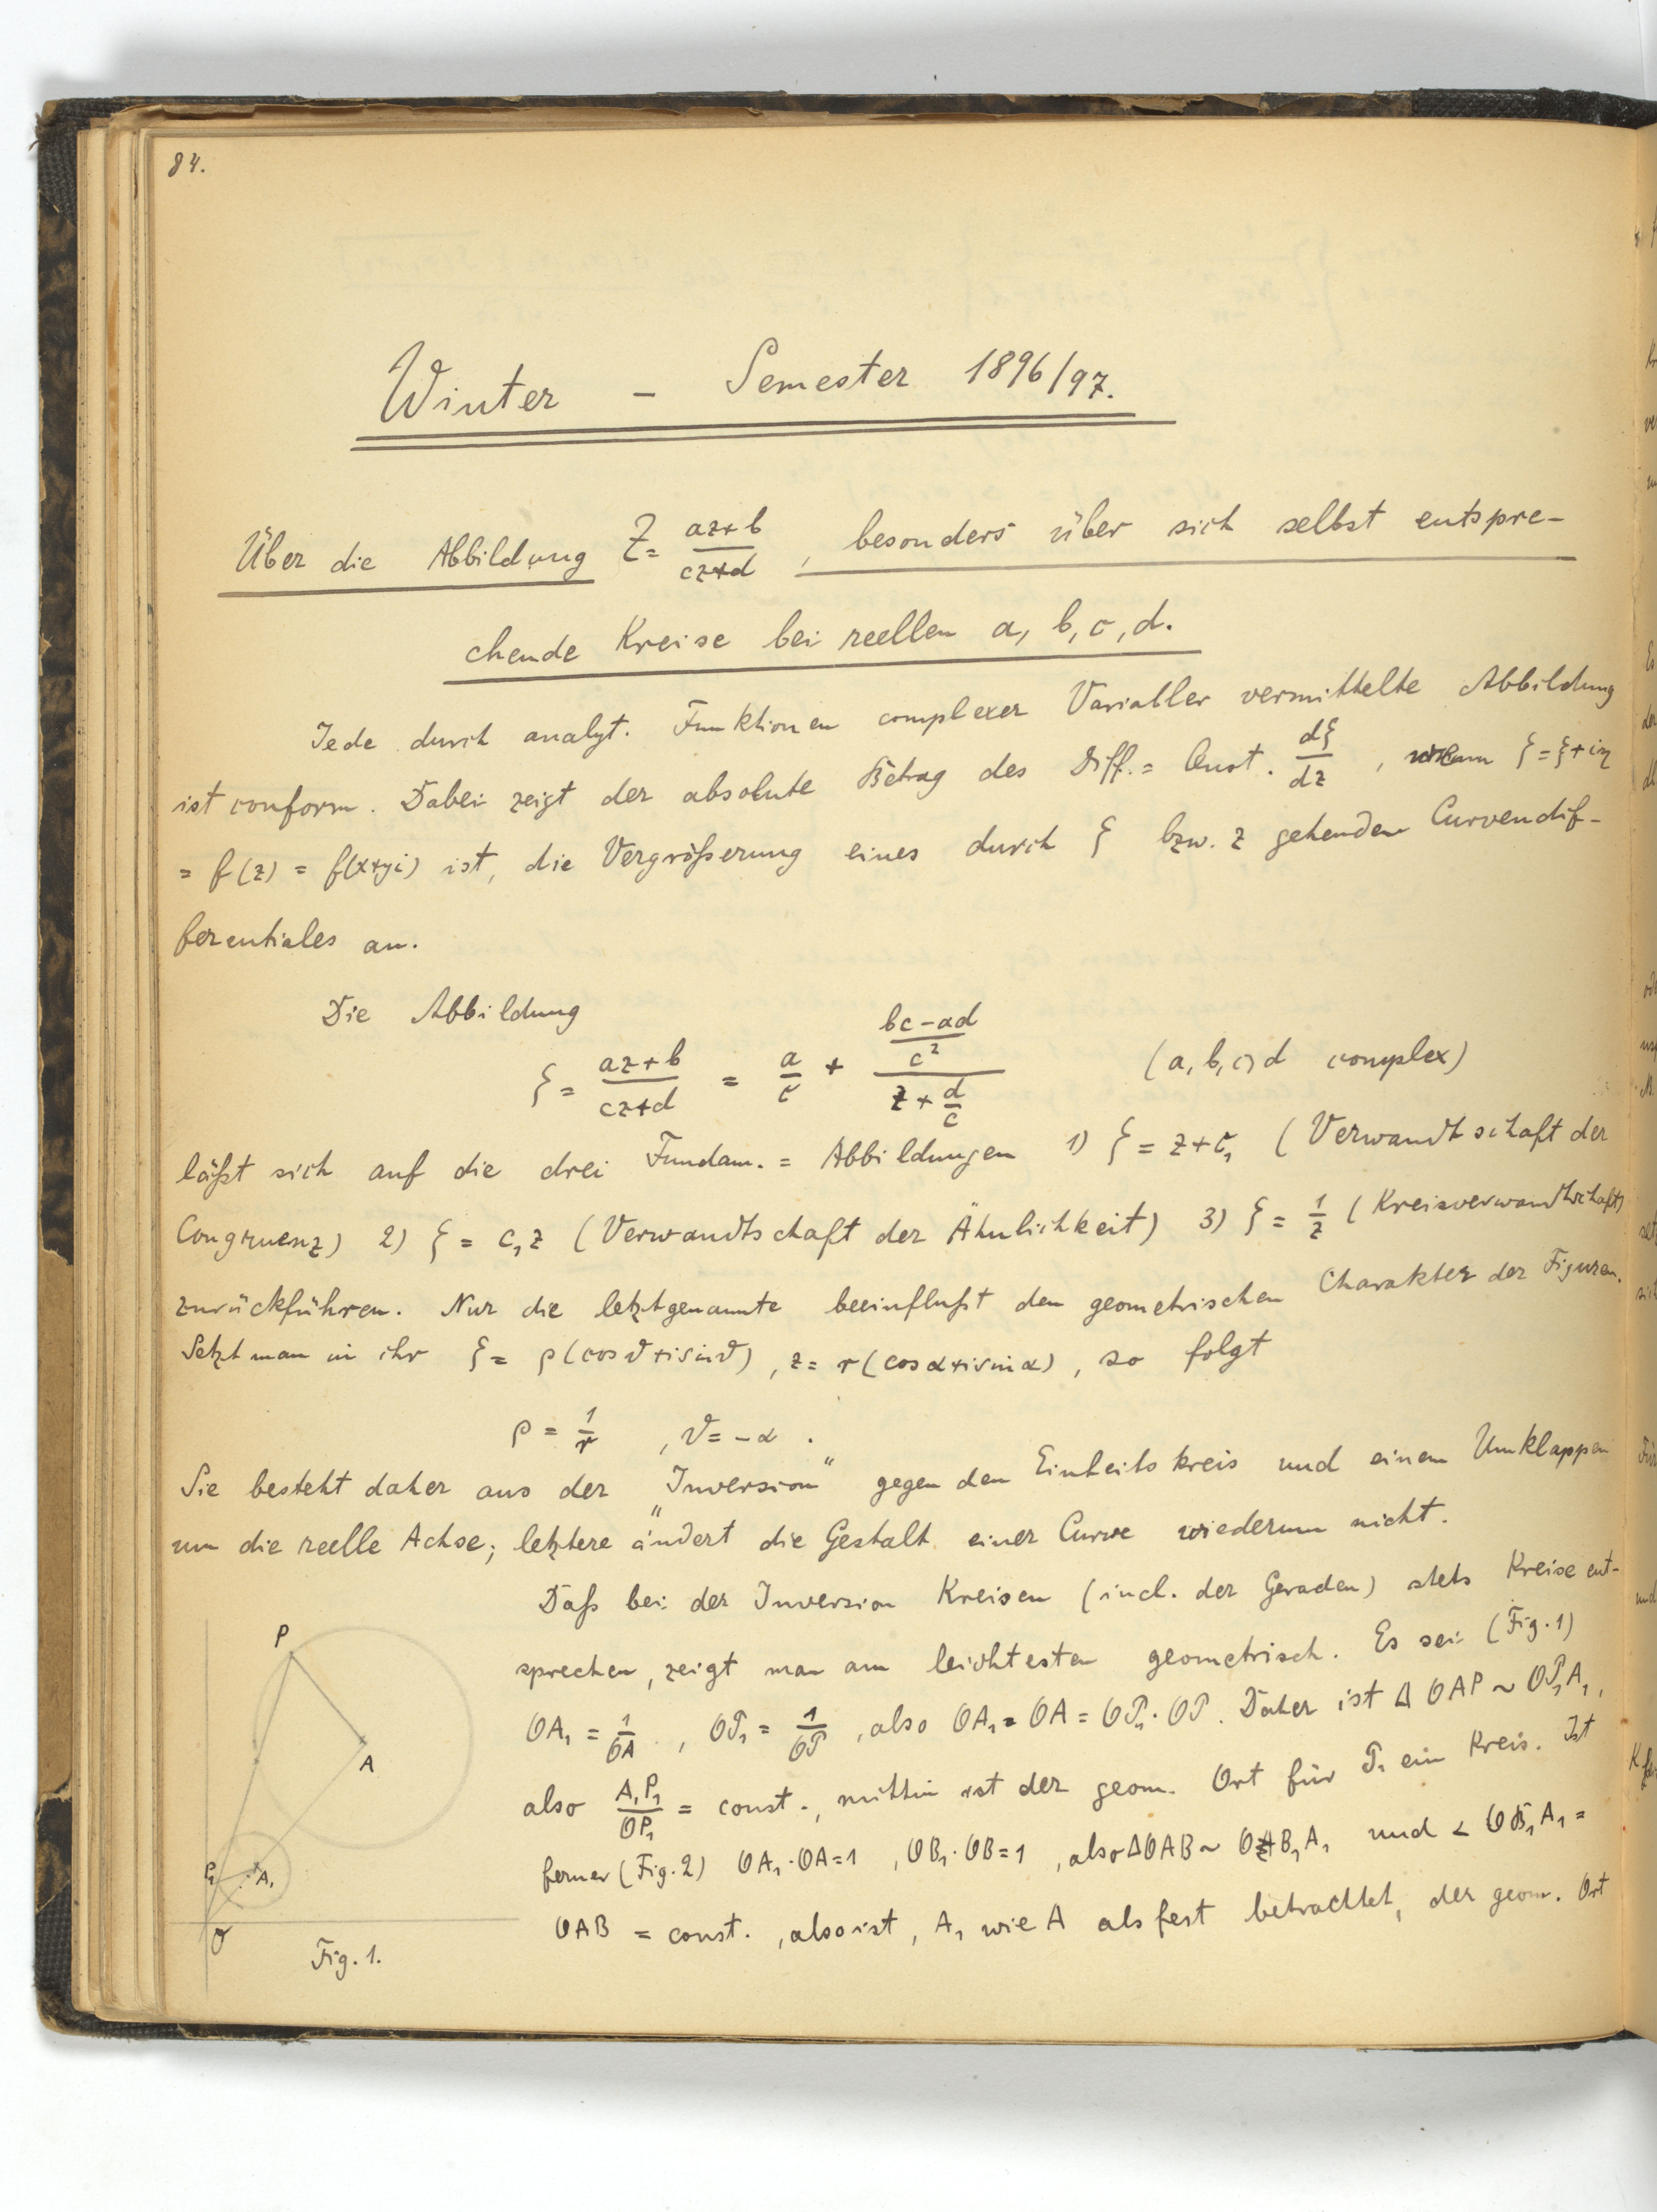 84.
Winter - Semester 1896/97.
Über die Abbildung Z = (az+b)/(cz+d), besonders über sich selbst entspre-
chende Kreise bei reellen a, b, c, d.
Jede durch analyt. Funktionen complexer Variabler vermittelte Abbildung
ist conform. Dabei zeigt der absolute Betrag des Diff.= Quot. dζ/dz, wenn ζ = ξ+iη
= f(z) = f(x+yi) ist, die Vergrößerung eines durch ζ bzw. z gehenden Curvendif-
ferentiales an.
Die Abbildung
ζ = (az+b)/(cz+d) = a/c + ((bc-ad)/c²)/(z + d/c) (a, b, c, d complex)
läßt sich auf die drei Fundam.= Abbildungen 1) ζ = z+c₁ (Verwandtschaft der
Congruenz) 2) ζ = c₁z (Verwandtschaft der Ähnlichkeit) 3) ζ = 1/z (Kreisverwandtschaft)
zurückführen. Nur die letztgenannte beeinflußt den geometrischen Charakter der Figuren.
Setzt man in ihr ζ = ρ(cosϑ+isinϑ), z = r(cosα+isinα), so folgt
ρ = 1/r , ϑ = -α .
Sie besteht daher aus der „Inversion“ gegen den Einheitskreis und einem Umklappen
um die reelle Achse; letztere ändert die Gestalt einer Curve wiederum nicht.
Daß bei der Inversion Kreisen (incl. der Geraden) stets Kreise ent-
sprechen, zeigt man am leichtesten geometrisch. Es sei (Fig. 1)
OA₁ = 1/OA , OP₁ = 1/OP , also OA₁ = OA = OP₁·OP. Daher ist Δ OAP ~ OP₁A₁,
also A₁P₁/OP₁ = const., mithin ist der geom. Ort für P₁ ein Kreis. Ist
ferner (Fig. 2) OA₁·OA=1 , OB₁·OB=1 , also ΔOAB ~ OB₁A₁ und ∠ OB₁A₁ =
OAB = const. , also ist, A₁ wie A als fest betrachtet, der geom. Ort
P
A
P₁
A₁
O
Fig. 1.